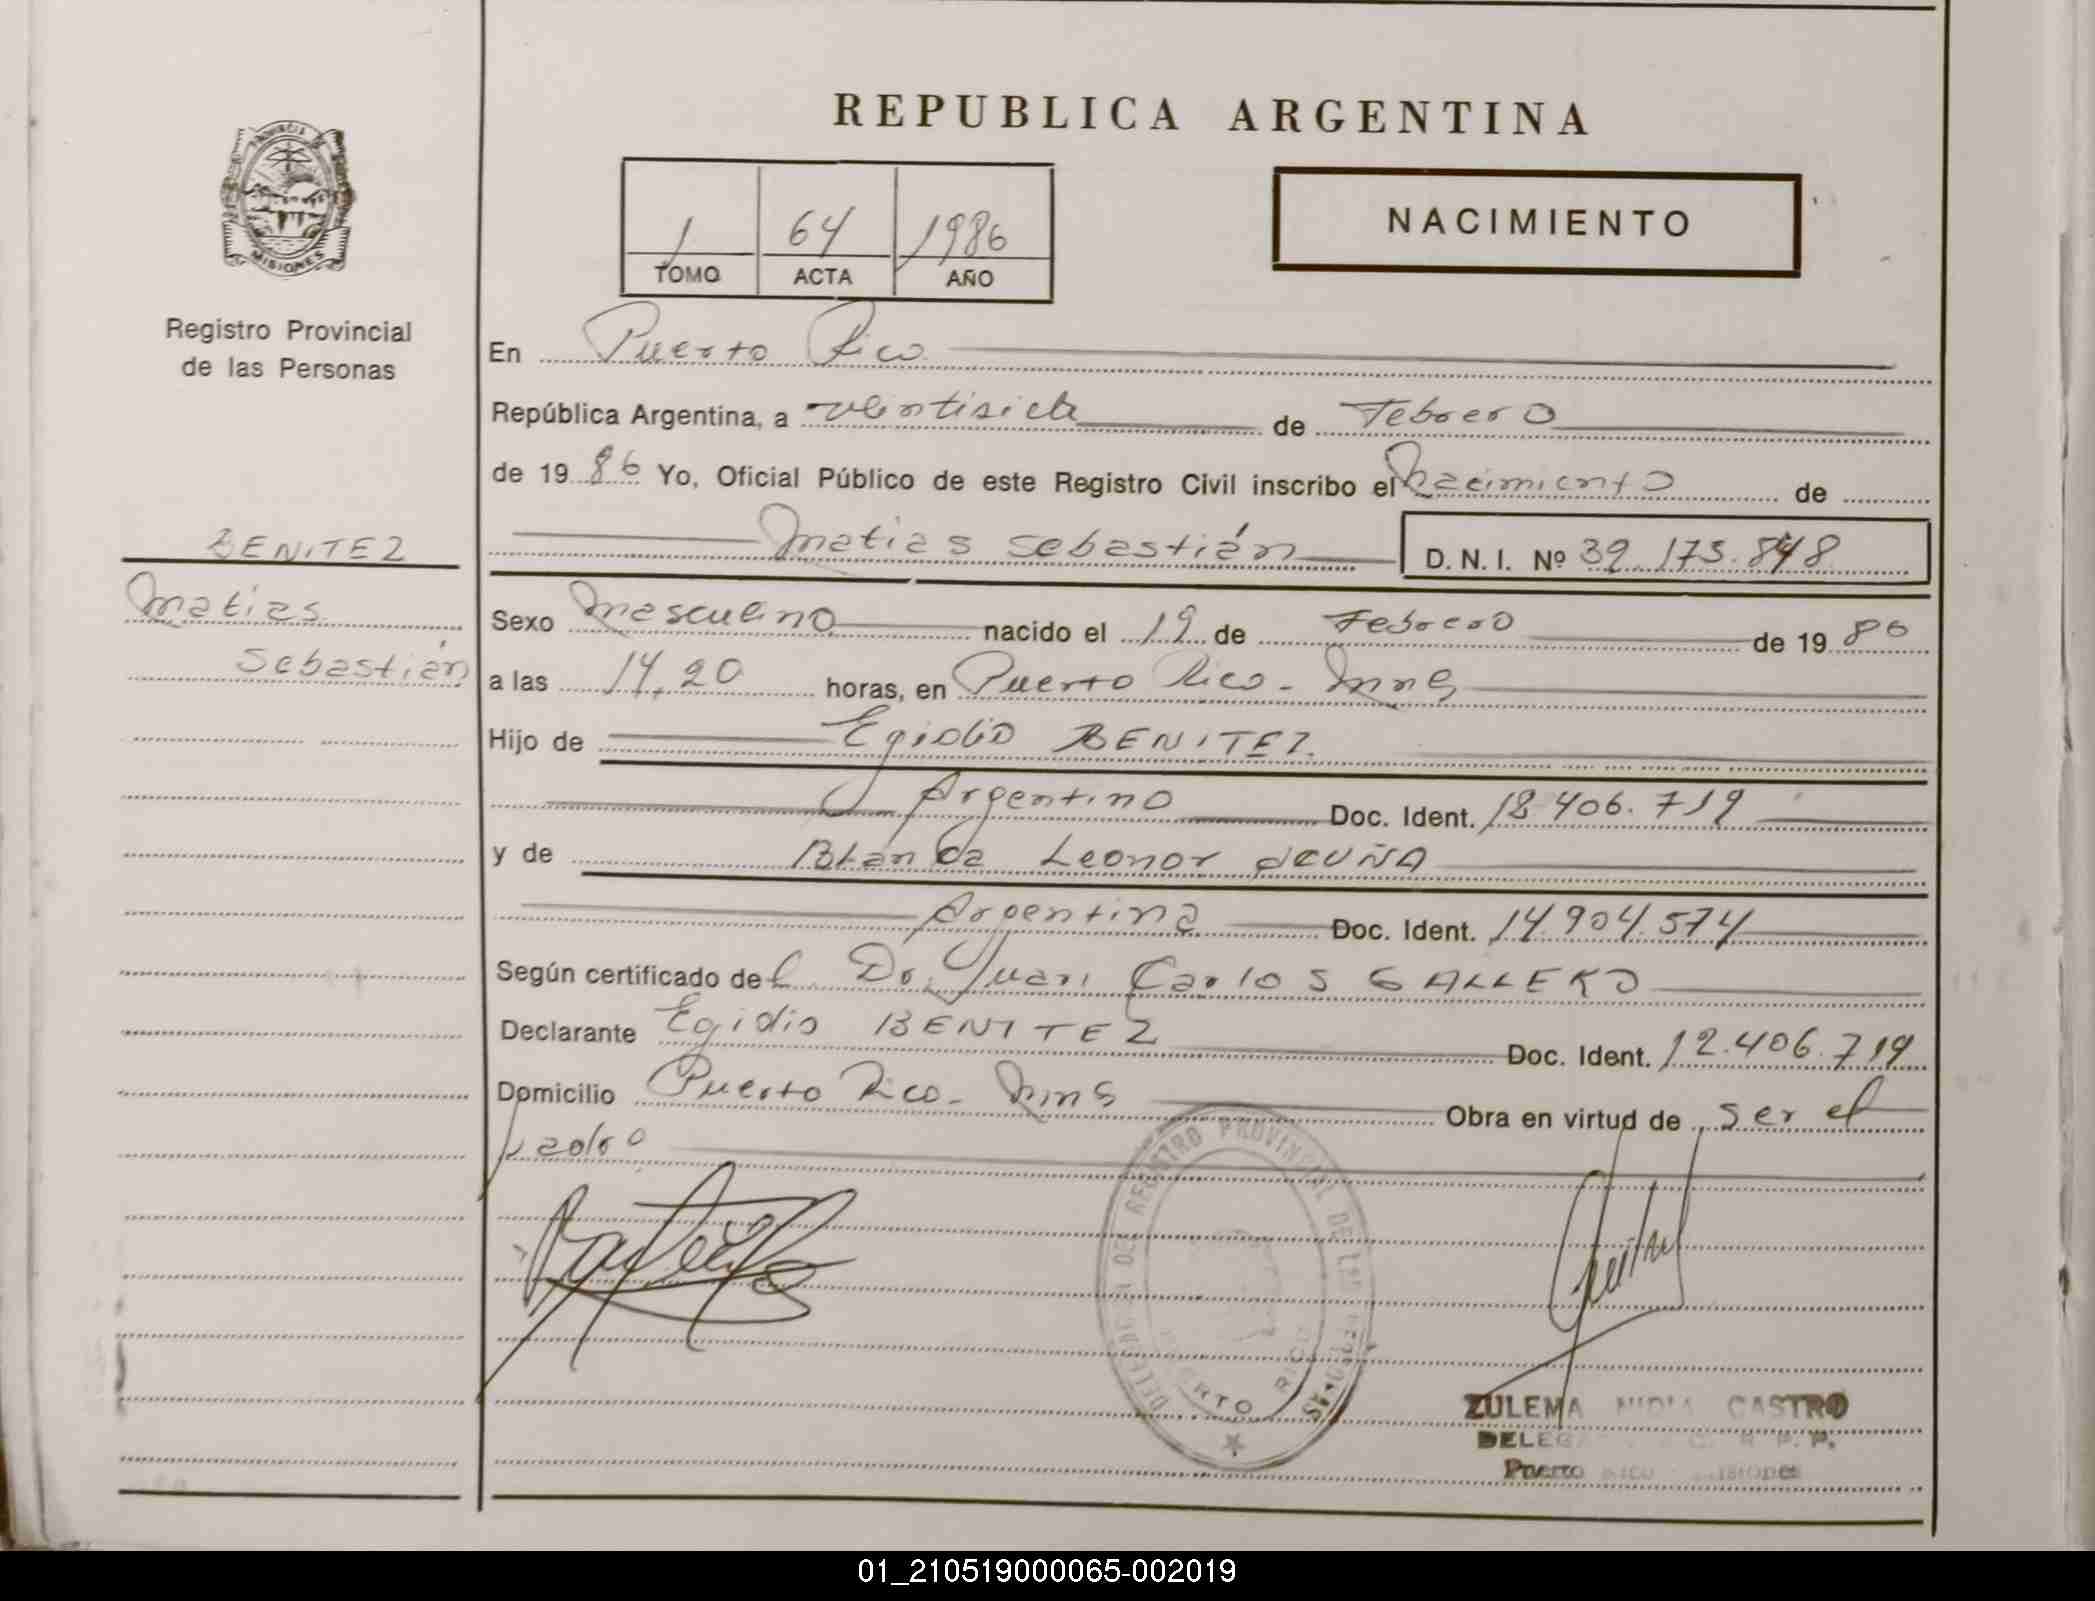 REPUBLICA ARGENTINA
PROVINCIA DE
MISIONES
1 64 1986
TOMO ACTA AÑO
NACIMIENTO
Registro Provincial
de las Personas
BENITEZ
Matias
Sebastián
En Puerto Rico
República Argentina, a veintisiete de Febrero
de 1986 Yo, Oficial Público de este Registro Civil inscribo el Nacimiento de
Matias Sebastián D. N. I. Nº 39.173.848
Sexo Masculino nacido el 19 de Febrero de 1986
a las 14,20 horas, en Puerto Rico - Mnes
Hijo de Egidio BENITEZ
Argentino Doc. Ident. 12.406.719
y de Blanca Leonor ACUÑA
Argentina Doc. Ident. 14.904.574
Según certificado del Dr. Juan Carlos GALLERO
Declarante Egidio BENITEZ Doc. Ident. 12.406.719
Domicilio Puerto Rico - Mnes Obra en virtud de ser el
padre
DELEGACION DEL REGISTRO PROVINCIAL DE LAS PERSONAS
PUERTO RICO
MISIONES
ZULEMA NIDIA CASTRO
R. P. P.
Puerto Rico Misiones
01_210519000065-002019